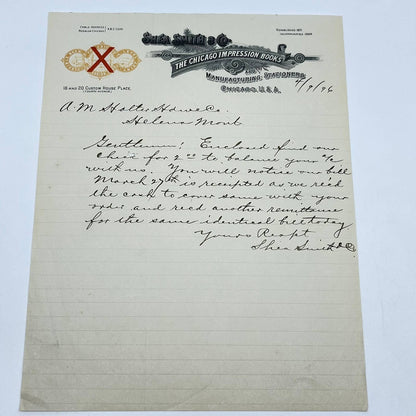 CABLE ADDRESS
A.B.C. CODE
ESTABLISHED 1871
INCORPORATED 1889
Shea Smith & Co.
X
THE CHICAGO IMPRESSION BOOKS
AND
MANUFACTURING STATIONERS
18 AND 20 CUSTOM HOUSE PLACE.
CHICAGO, U.S.A.
4/9/96
A. M Holter Hdwe Co.
Helena Mont
Gentlemen! Enclosed find our
check for 2 to balance your a/c
with us. You will notice our bill
March 27th is receipted as we recd
the cash to cover same with your
order and recd another remittance
for the same identical bill today
Yours Respt
Shea Smith & Co